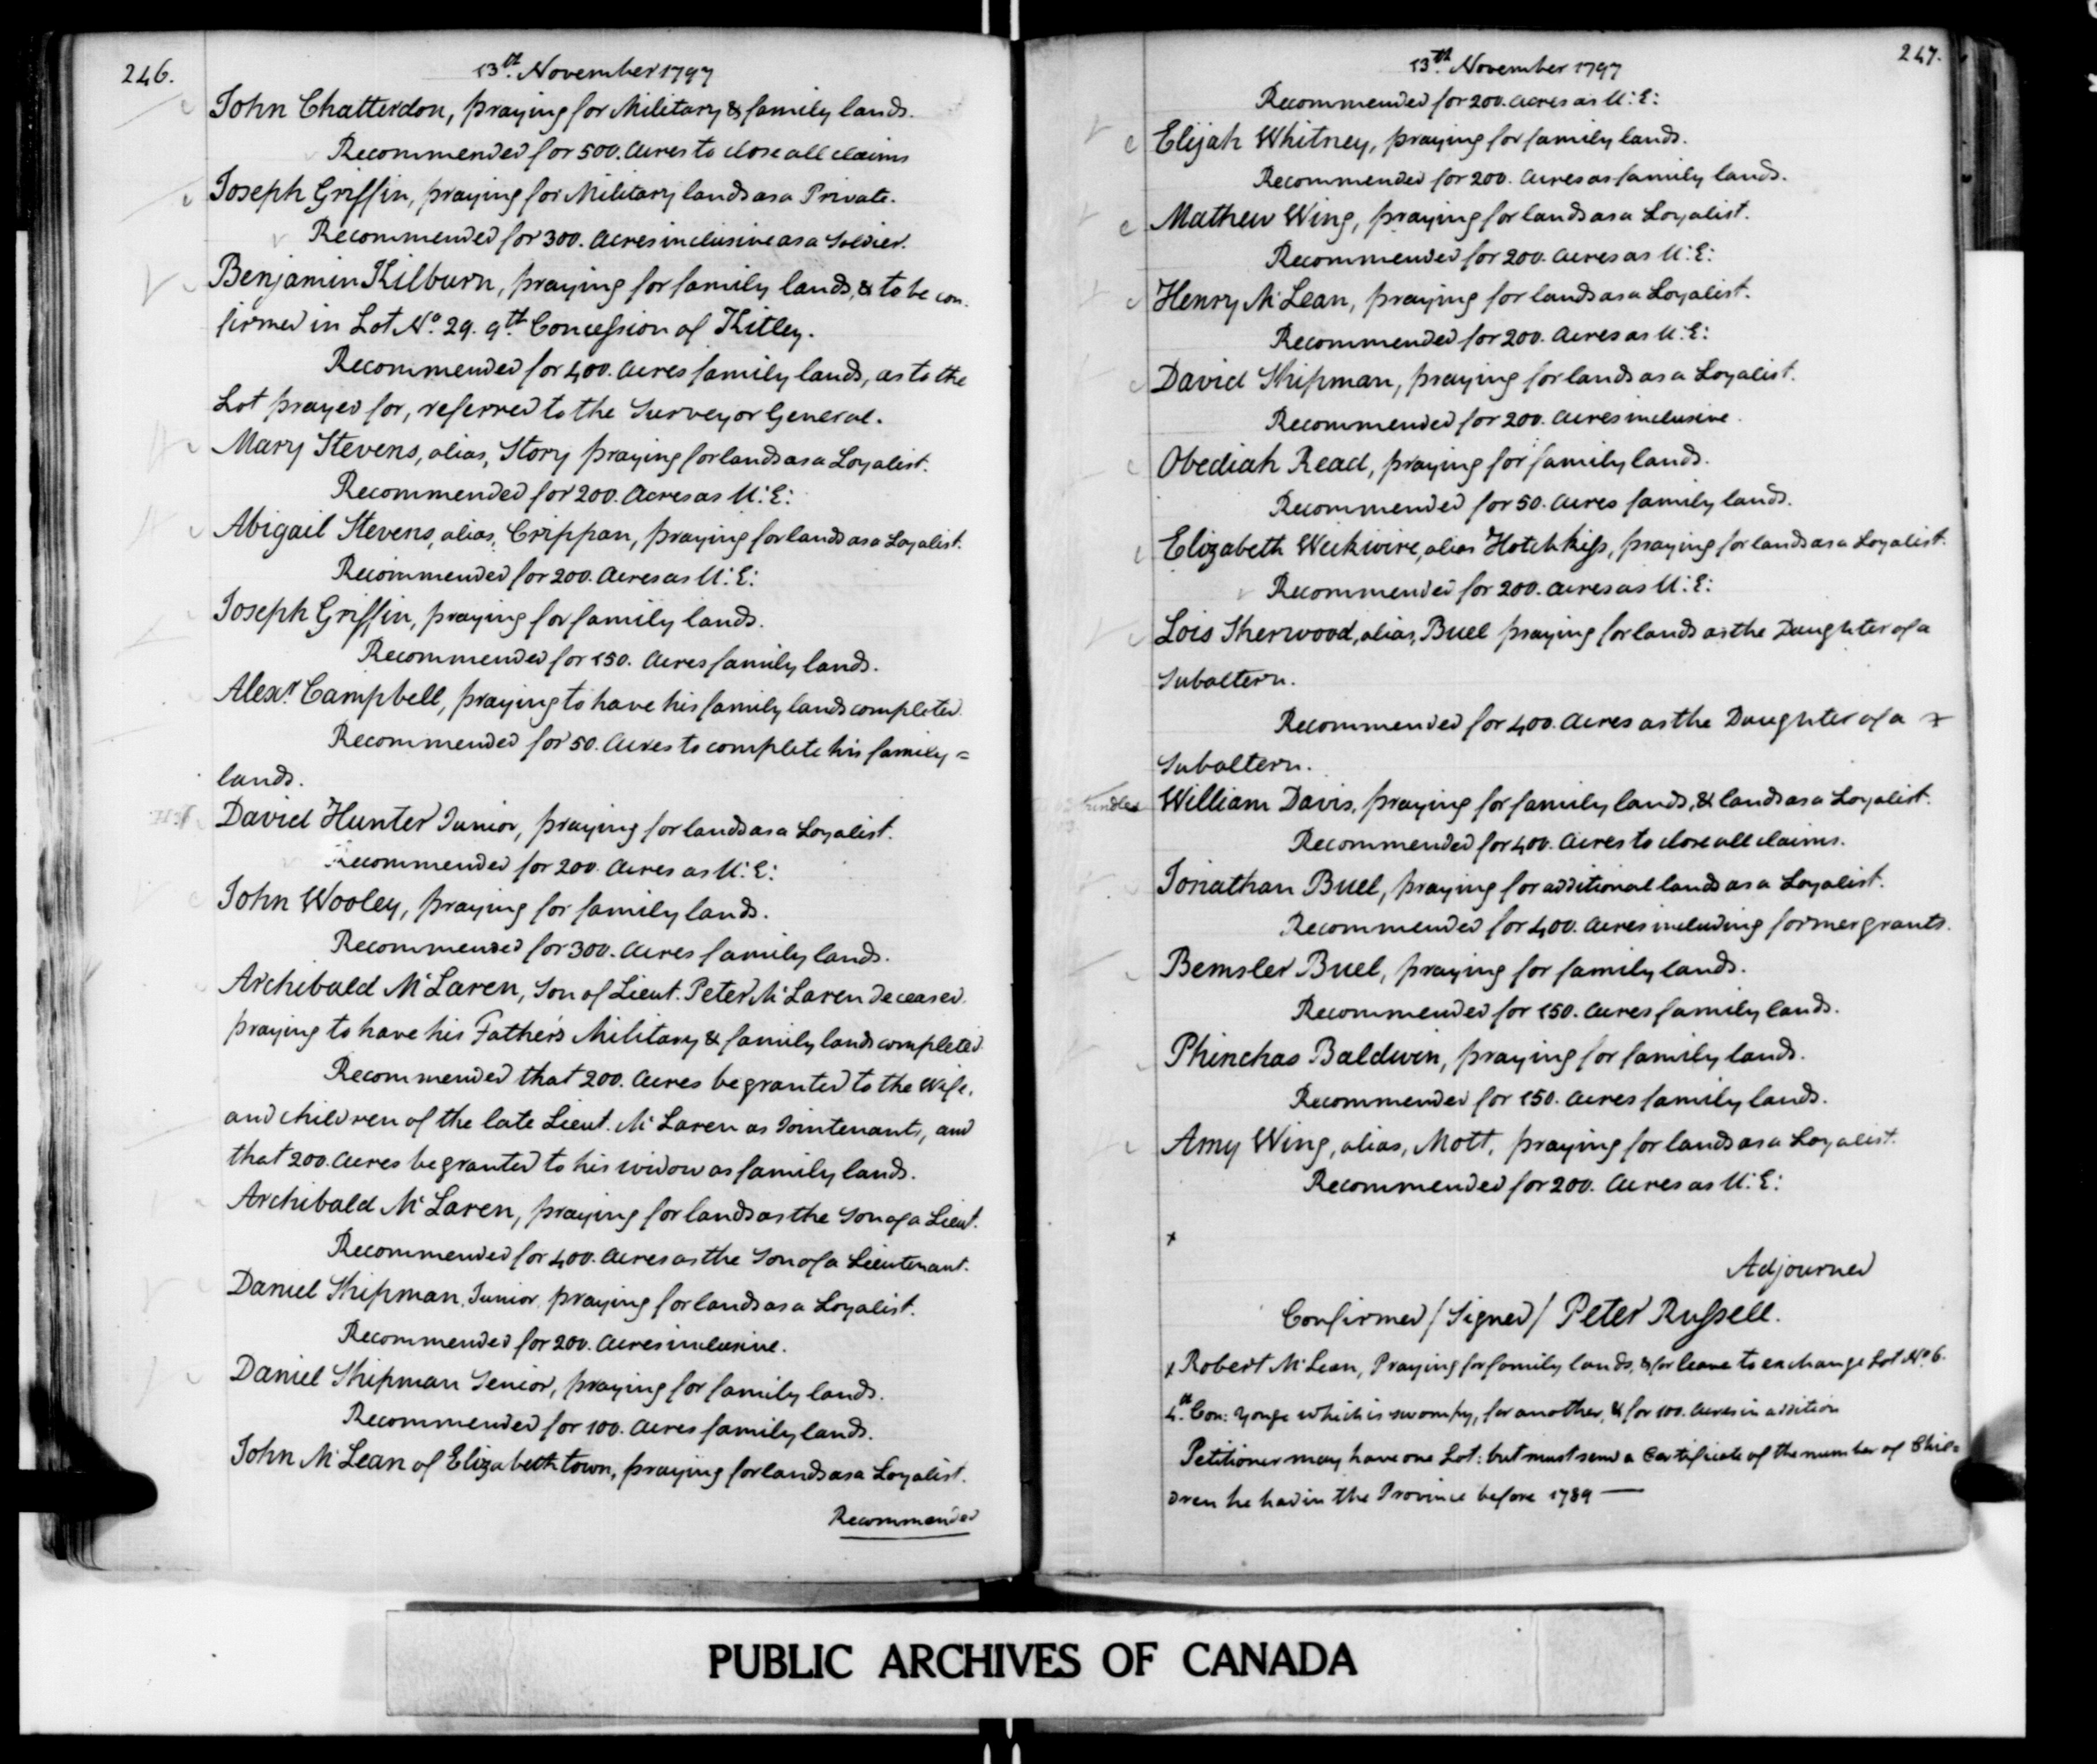 246.
13th November 1797
John Chatterdon, praying for Military & family lands.
Recommended for 500. Acres to close all claims
Joseph Griffin, praying for Military lands as a Private.
Recommended for 300. Acres inclusive as a Soldier.
Benjamin Kilburn, praying for family lands, & to be con-
firmed in Lot No. 29. 9th Concession of Kitley.
Recommended for 400. Acres family lands, as to the
Lot prayed for, referred to the Surveyor General.
Mary Stevens, alias, Story praying for lands as a Loyalist.
Recommended for 200. Acres as U:E:
Abigail Stevens, alias, Crippan, praying for lands as a Loyalist.
Recommended for 200. Acres as U:E:
Joseph Griffin, praying for family lands.
Recommended for 150. Acres family lands.
Alexr. Campbell, praying to have his family lands completed.
Recommended for 50. Acres to complete his family =
lands.
David Hunter Junior, praying for lands as a Loyalist.
Recommended for 200. Acres as U:E:
John Wooley, praying for family lands.
Recommended for 300. Acres family lands.
Archibald McLaren, Son of Lieut. Peter McLaren deceased.
praying to have his Father's Military & family lands completed.
Recommended that 200. Acres be granted to the Wife,
and children of the late Lieut. McLaren as Jointenants, and
that 200. Acres be granted to his widow as family lands.
Archibald McLaren, praying for lands as the Son of a Lieut.
Recommended for 400. Acres as the Son of a Lieutenant.
Daniel Shipman, Junior, praying for lands as a Loyalist.
Recommended for 200. Acres inclusive.
Daniel Shipman Senior, praying for family lands.
Recommended for 100. Acres family lands.
John McLean of Elizabeth town, praying for lands as a Loyalist.
Recommended
247.
13th November 1797
Recommended for 200. Acres as U:E:
Elijah Whitney, praying for family lands.
Recommended for 200. Acres as family lands.
Mathew Wing, praying for lands as a Loyalist.
Recommended for 200. Acres as U:E:
Henry McLean, praying for lands as a Loyalist.
Recommended for 200. Acres as U:E:
David Shipman, praying for lands as a Loyalist.
Recommended for 200. Acres inclusive.
Obediah Read, praying for family lands.
Recommended for 50. Acres family lands.
Elizabeth Weekwire, alias Hotchkiss, praying for lands as a Loyalist.
Recommended for 200. Acres as U:E:
Lois Sherwood, alias, Buell praying for lands as the Daughter of a
Subaltern.
Recommended for 400. Acres as the Daughter of a x
Subaltern.
William Davis, praying for family lands, & lands as a Loyalist.
Recommended for 400. Acres to close all claims.
Jonathan Buel, praying for additional lands as a Loyalist.
Recommended for 400. Acres including former grants.
Bemsler Buel, praying for family lands.
Recommended for 150. Acres family lands.
Phinehas Baldwin, praying for family lands.
Recommended for 150. Acres family lands.
Amy Wing, alias, Mott, praying for lands as a Loyalist.
Recommended for 200. Acres as U:E:
x
Adjourned
Confirmed / Signed / Peter Russell.
x Robert McLean, Praying for family lands, & for leave to exchange Lot No. 6.
4th Con: Yonge which is swampy, for another, & for 100. Acres in addition
Petitioner may have one Lot: but must send a Certificate of the number of Chil=
dren he had in the Province before 1789 —
PUBLIC ARCHIVES OF CANADA